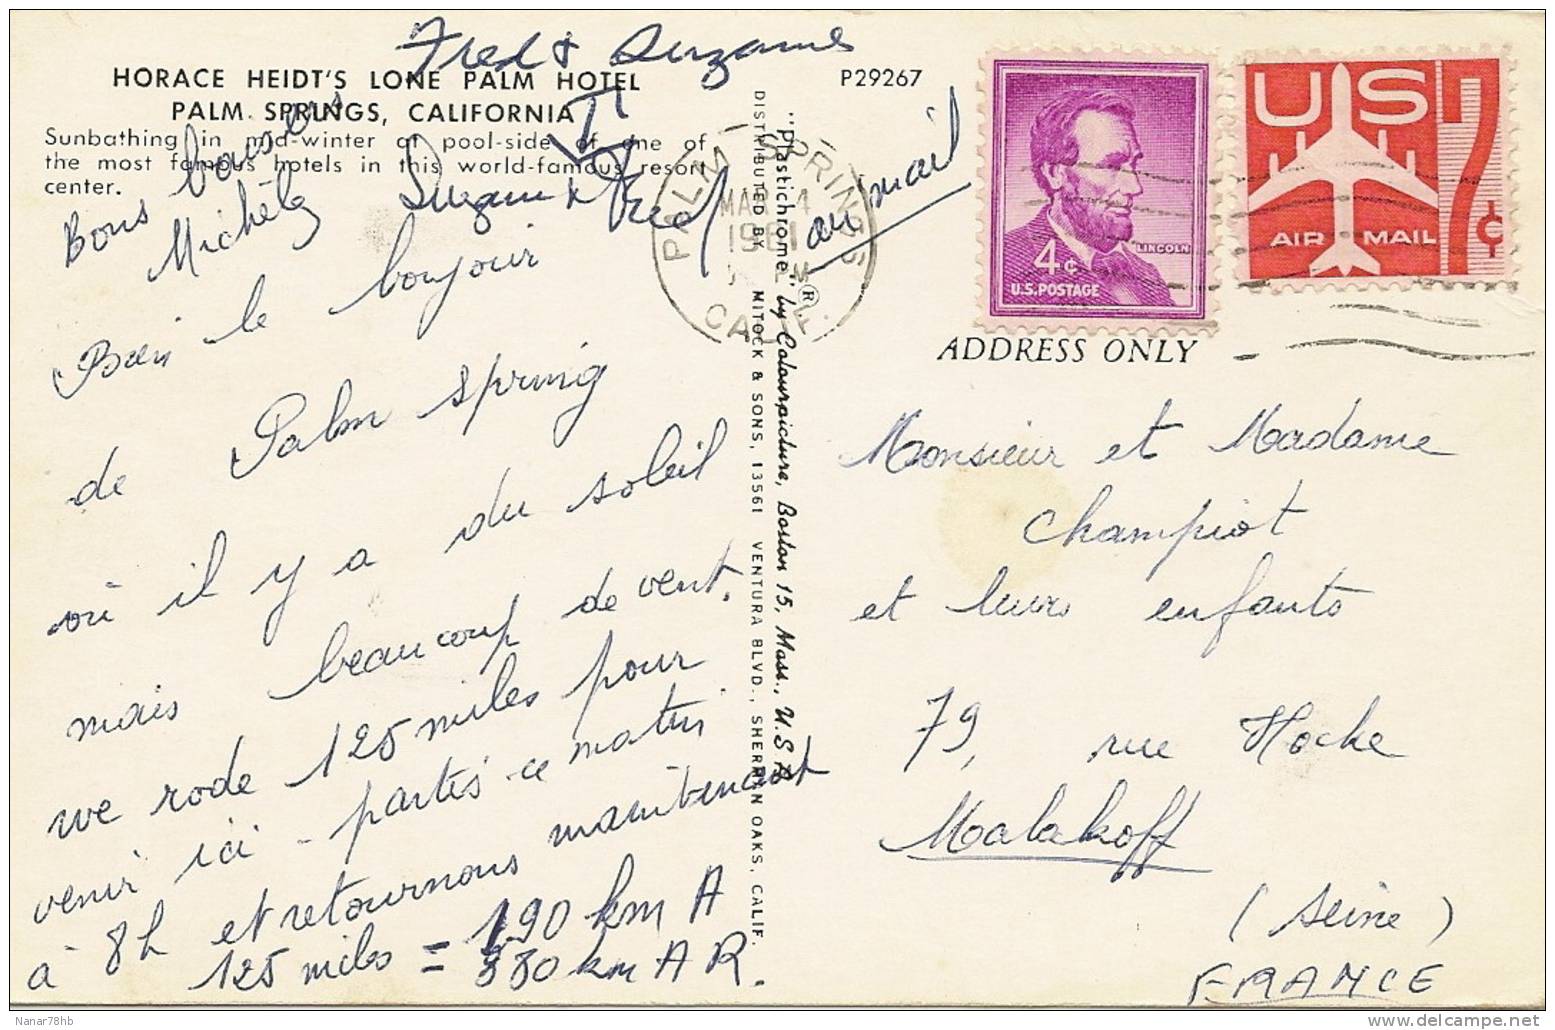 Fred & Suzanne
HORACE HEIDT'S LONE PALM HOTEL
PALM SPRINGS, CALIFORNIA
P29267
Sunbathing in mid-winter at pool-side of one of
the most famous hotels in this world-famous resort
center.
Bons baisers
Michèle
Suzanne & Fred
Bien le bonjour
de Palm Spring
où il y a du soleil
mais beaucoup de vent.
we rode 125 miles pour
venir ici - partis ce matin
à 8h et retournons maintenant
125 miles = 190 km A
= 380 km A R.
"Plastichrome" ® by Colourpicture, Boston 15, Mass., U.S.A.
DISTRIBUTED BY MITOCK & SONS, 13561 VENTURA BLVD., SHERMAN OAKS, CALIF.
PALM SPRINGS
MAR 4
1961
CALIF.
air mail
4¢
LINCOLN
U.S. POSTAGE
US
7¢
AIR MAIL
ADDRESS ONLY
Monsieur et Madame
Champiot
et leurs enfants
79, rue Hoche
Malakoff
(Seine)
FRANCE
Nanar78hb